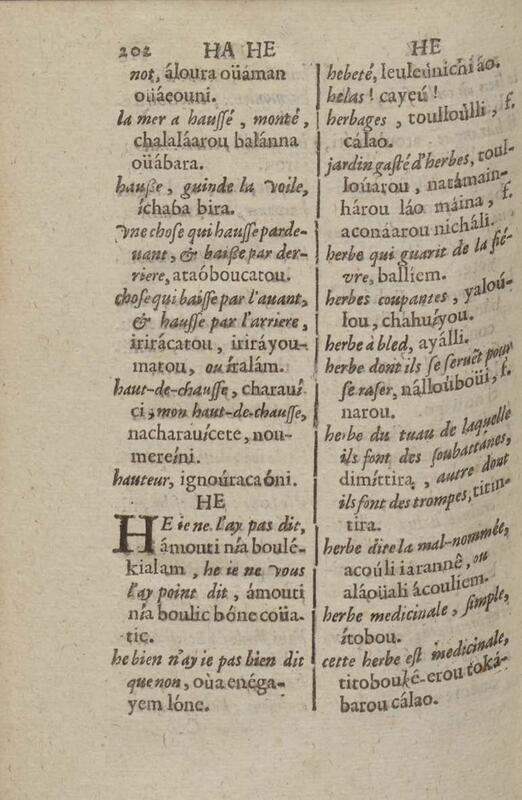 202 HA HE
not, áloura oüáman
oüáeouni.
la mer a haussé, monté,
chalaláarou balánna
oüábara.
hauße, guinde la voile,
íchaba bira.
vne chose qui hausse parde-
uant, & baiße par der-
riere, ataóboucatou.
chose qui baisse par l'auant,
& hausse par l'arriere,
irirácatou, iriráyou-
matou, ou íralám.
haut-de-chausse, charauí
ci, mon haut-de-chausse,
nacharauícete, nou-
mereíni.
hauteur, ignoúracaóni.
HE
HE ie ne l'ay pas dit,
ámouti nía boulé-
kialam, he ie ne vous
l'ay point dit, ámouti
nía boulic bóne coüa-
tic.
he bien n'ay ie pas bien dit
que non, oüa enéga-
yem lóne.
HE
hebeté, leuleúnichi áo.
helas! cayeú!
herbages, toulloúlli, f.
cálao.
jardin gasté d'herbes, toul-
loúarou, natámain-
hárou láo máina, f.
aconáarou nicháli.
herbe qui guarit de la fié-
vre, balliem.
herbes coupantes, yaloú-
lou, chahuíyou.
herbe à bled, ayálli.
herbe dont ils se seruẽt pour
se raser, nálloubouï, f.
narou.
herbe du tuau de laquelle
ils font des soubattánes,
dimíttira, autre dont
ils font des trompes, titin-
tira.
herbe dite la mal-nommée,
acoúli iárannê, ou
aláoüali ácouliem.
herbe medicinale, simple,
ítobou.
cette herbe est medicinale,
titoboukê-erou toká-
barou cálao.